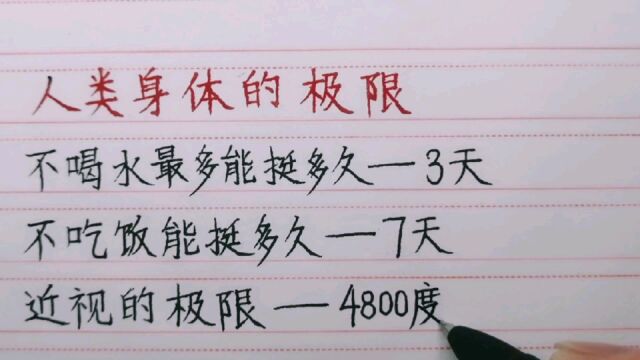 人类身体的极限
不喝水最多能挺多久—3天
不吃饭能挺多久—7天
近视的极限—4800度